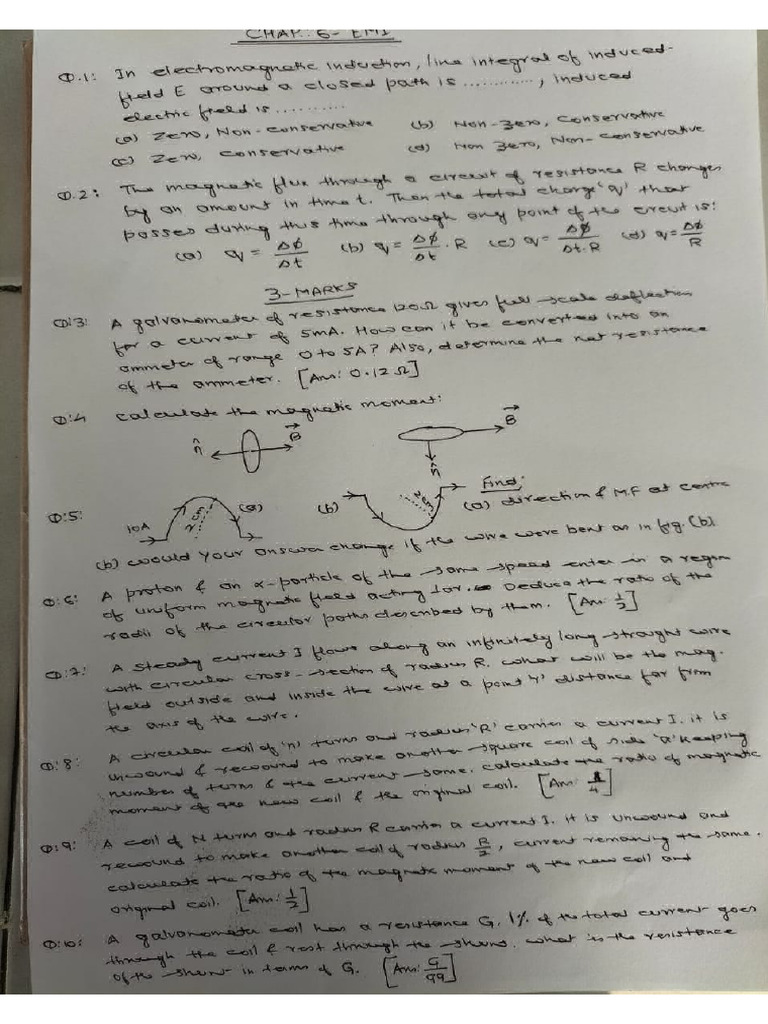 CHAP: 6- EMI
Q.1: In electromagnetic induction, line integral of induced-
field E around a closed path is ............, induced
electric field is ..........
(a) Zero, Non-conservative (b) Non-Zero, Conservative
(c) Zero, Conservative (d) Non Zero, Non-Conservative
Q.2: The magnetic flux through a circuit of resistance R changes
by an amount in time t. Then the total charge 'q' that
passes during this time through any point of the circuit is:
(a) q = Δφ/Δt (b) q = Δφ/Δt . R (c) q = Δφ/Δt.R (d) q = Δφ/R
3-MARKS
Q:3: A galvanometer of resistance 120Ω gives full scale deflection
for a current of 5mA. How can it be converted into an
ammeter of range 0 to 5A? Also, determine the net resistance
of the ammeter. [Ans: 0.12Ω]
Q:4 Calculate the magnetic moment:
n̂ B⃗ B⃗
n̂
Q:5 10A 2cm (a) (b) 2cm Find: (a) direction of M.F at centre
(b) would your answer change if the wire were bent as in fig (b).
Q:6: A proton & an α-particle of the same speed enter in a region
of uniform magnetic field acting Deduce the ratio of the
radii of the circular paths described by them. [Ans: 1/2]
Q:7: A steady current I flows along an infinitely long straight wire
with circular cross-section of radius R. what will be the mag.
field outside and inside the wire at a point 'r' distance far from
the axis of the wire.
Q:8: A circular coil of 'n' turns and radius 'R' carries a current I. it is
unwound & rewound to make another square coil of side 'a' keeping
number of turns & the current same. calculate the ratio of magnetic
moment of the new coil & the original coil. [Ans: /4]
Q:9: A coil of N turns and radius R carries a current I. it is unwound and
rewound to make another coil of radius R/2, current remaining the same.
calculate the ratio of the magnetic moment of the new coil and
original coil. [Ans: 1/2]
Q:10: A galvanometer coil has a resistance G. 1% of the total current goes
through the coil & rest through the shunt. what is the resistance
of the shunt in terms of G. [Ans: G/99]